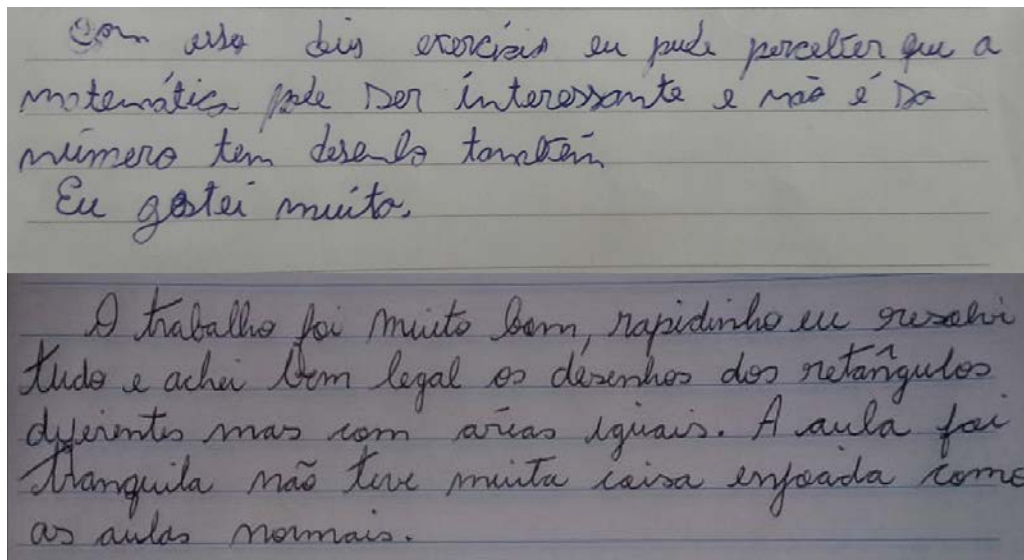 Com esse dois exercícios eu pude perceber que a
matemática pode ser interessante e não é so
número tem desenho também
Eu gostei muito.
O trabalho foi muito bom, rapidinho eu resolvi
tudo e achei bem legal os desenhos dos retângulos
diferentes mas com aréas iguais. A aula foi
tranquila não teve muita coisa enjoada como
as aulas normais.